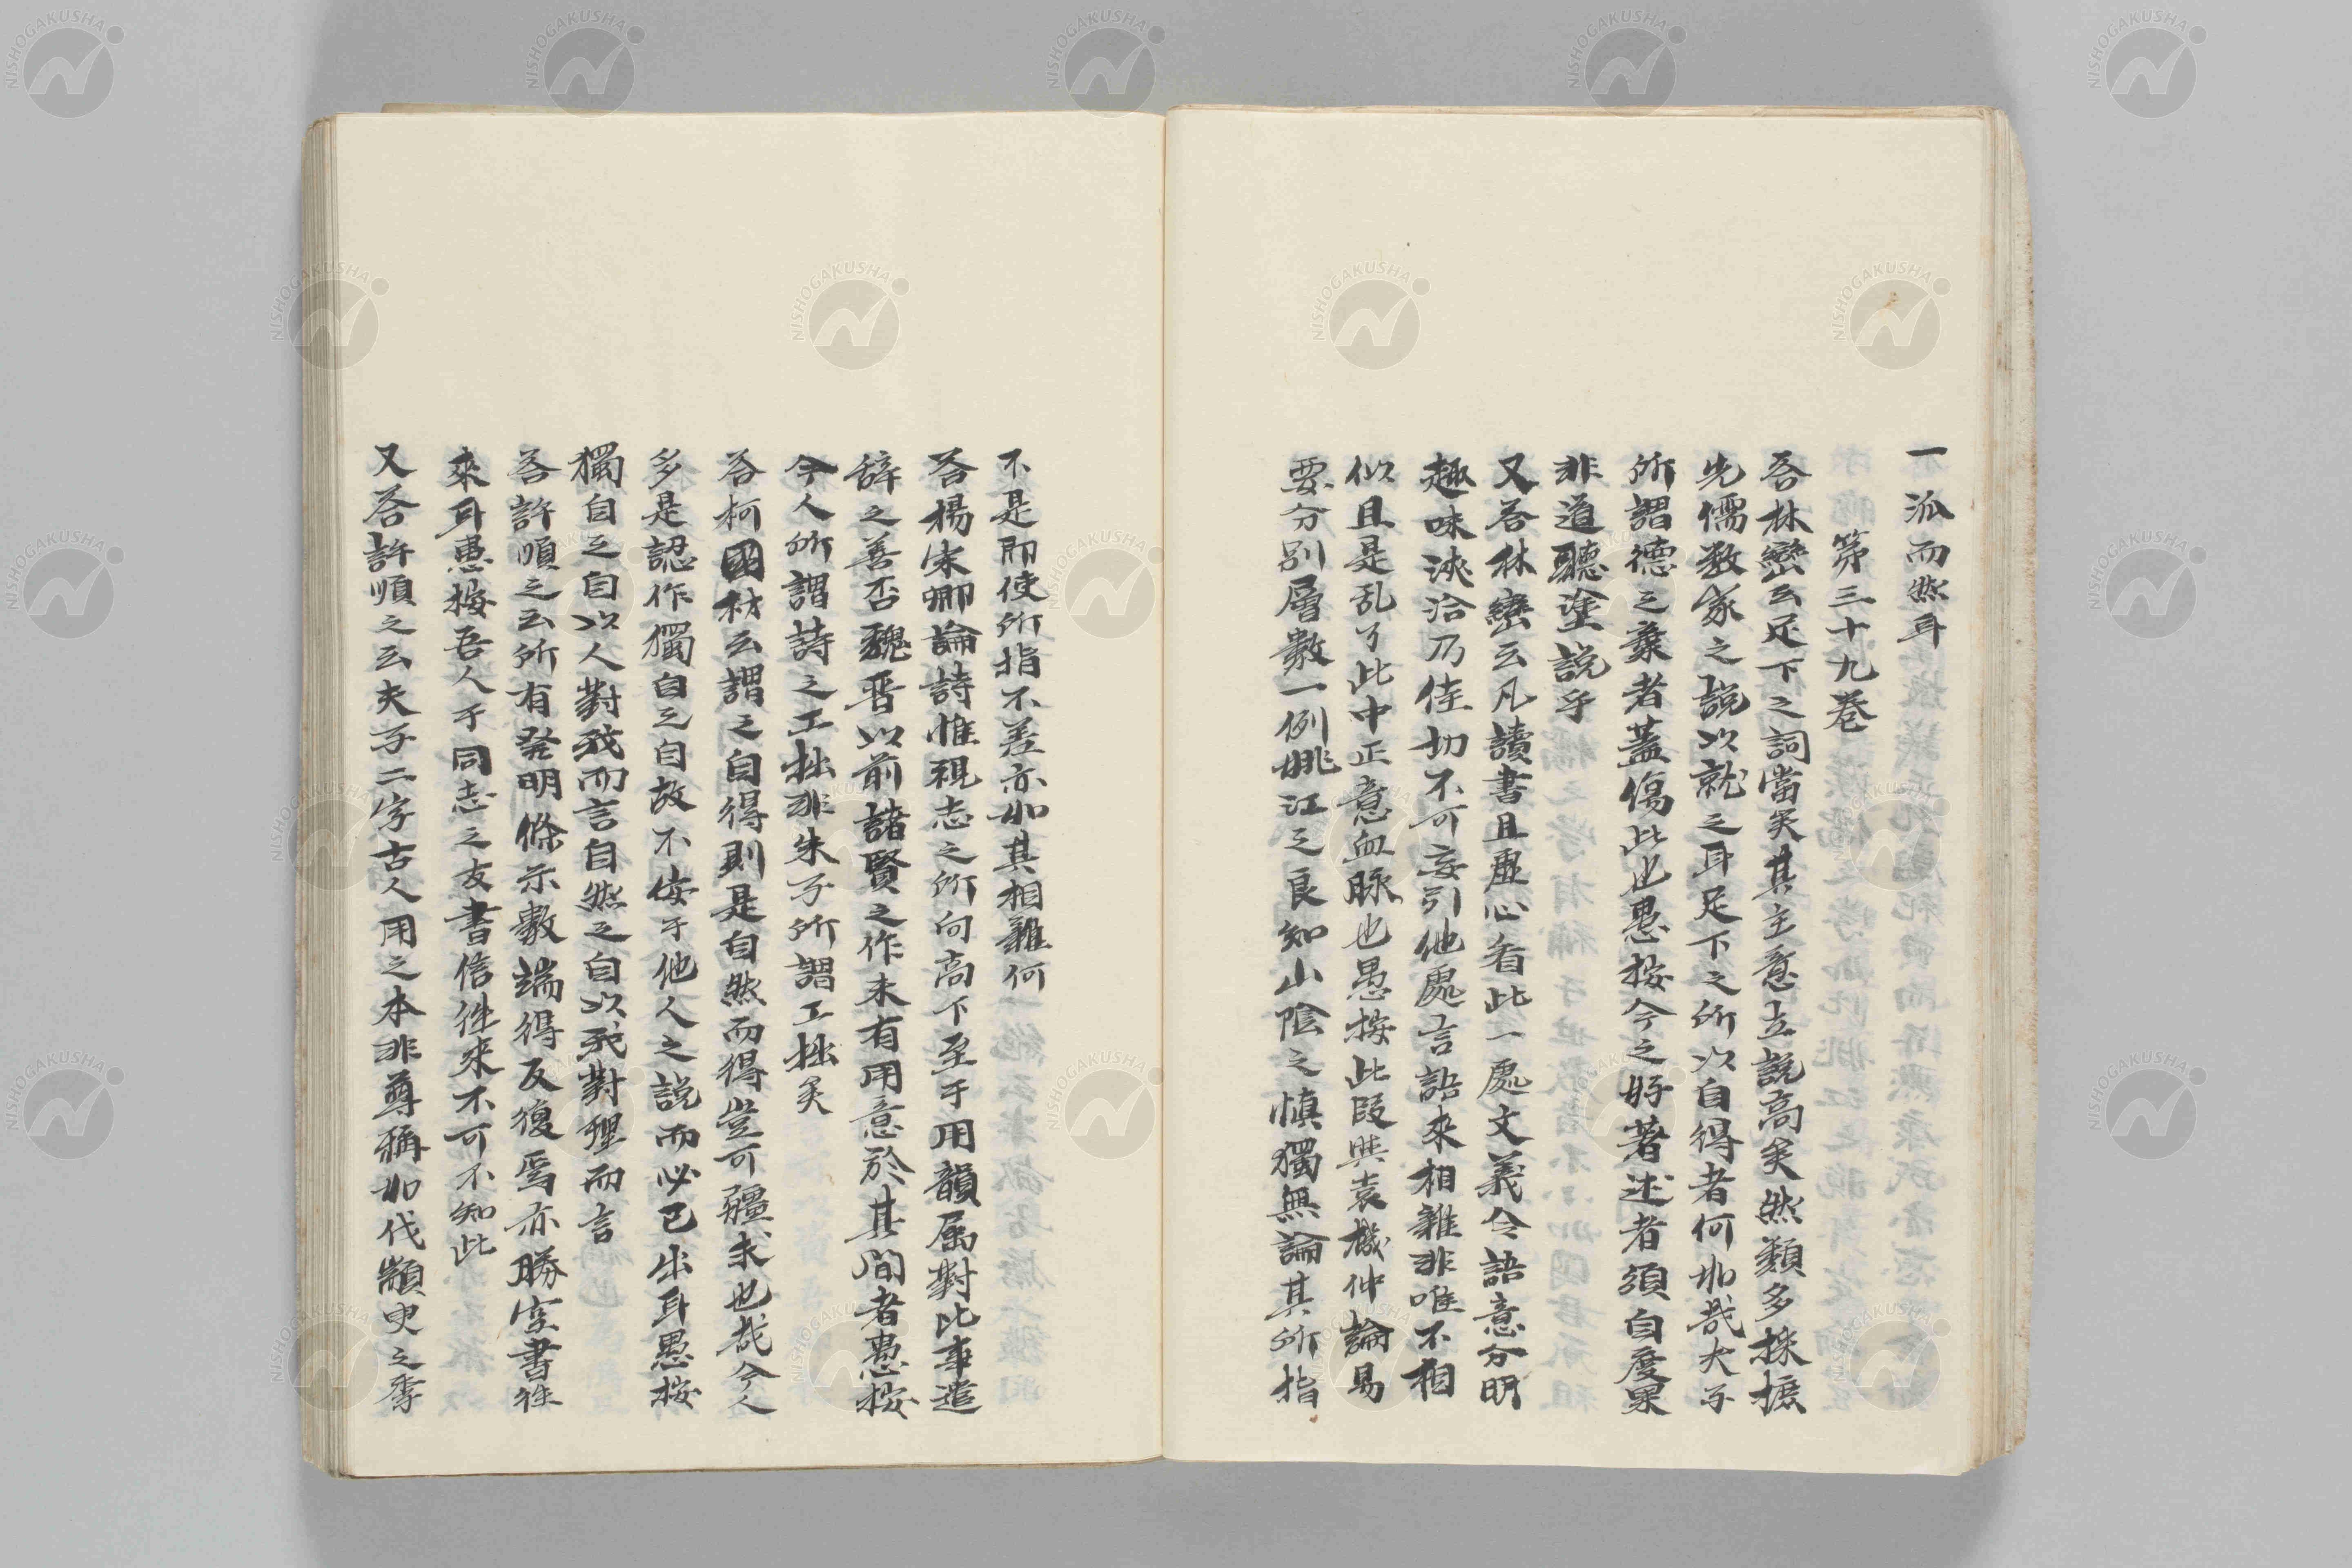 一派而然耳
第三十九巻
答林巒云足下之詞當矣其主意立説高矣然類多採摭
先儒数家之説以就之耳足下之所以自得者何如哉夫子
所謂德之棄者蓋傷此也愚按今之好著述者須自度果
非道聽塗説乎
又答林巒云凡讀書且虛心看此一處文義令語意分明
趣味浹洽乃佳切不可妄引他處言語來相雜非唯不相
似且是乱了此中正意血脉也愚按此段與袁機仲論易
要分別層數一例姚江之良知山陰之慎獨無論其所指
不是即使所指不差亦如其相雜何
答楊宋卿論詩惟視志之所向高下至于用韻属對比事遣
辞之善否魏晋以前諸賢之作未有用意於其間者愚按
今人所謂詩之工拙非朱子所謂工拙矣
答柯國材云謂之自得則是自然而得豈可彊求也哉今人
多是認作獨自之自故不安于他人之説而必己出耳愚按
獨自之自以人對我而言自然之自以我對理而言
答許順之云所有発明條示數端得反復焉亦勝空書往
來耳愚按吾人于同志之友書信往來不可不知此
又答許順之云夫子二字古人用之本非尊稱如伐顓臾之季
NISHOGAKUSHA